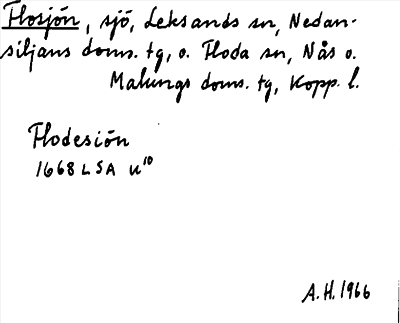 Flosjön, sjö, Leksands sn, Nedan-
siljans doms. tg, o. Floda sn, Nås o.
Malungs doms. tg, Kopp. l.
Flodesiön
1668 LSA U¹⁰
A.H. 1966